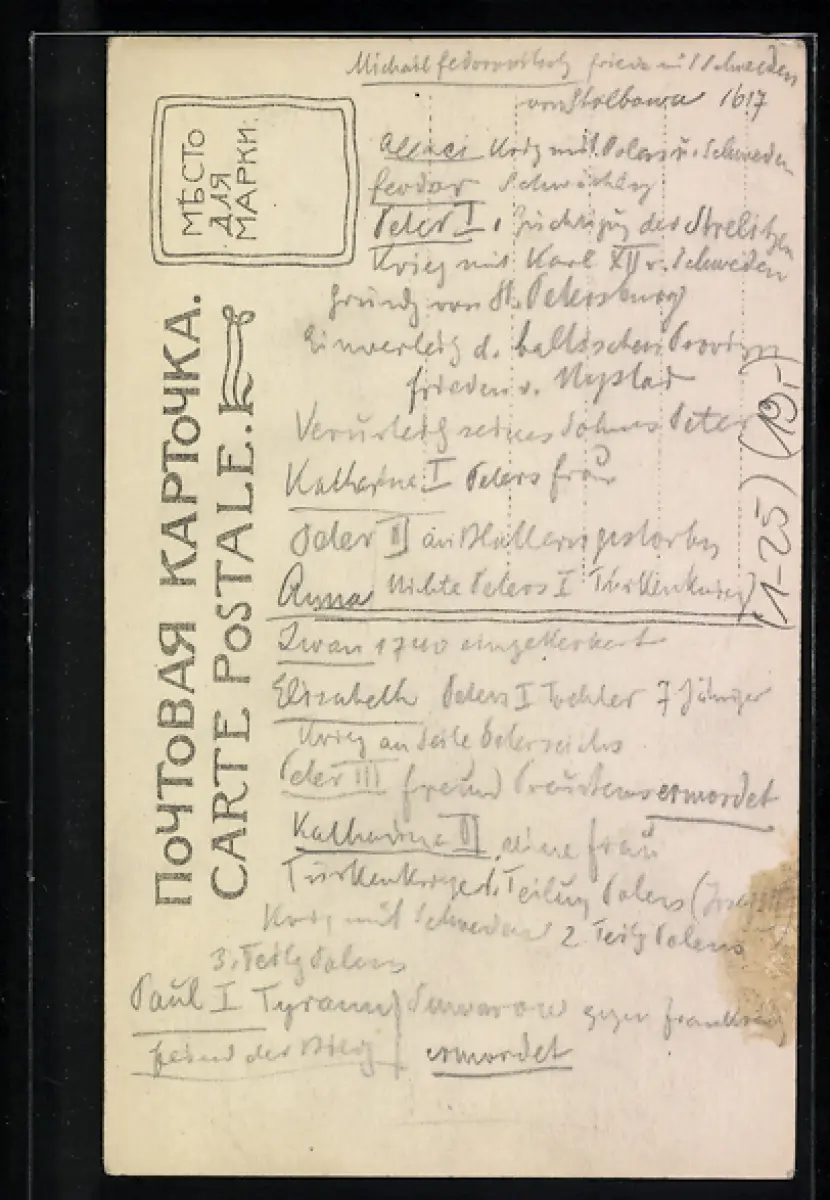 МѢСТО
ДЛЯ
МАРКИ.
ПОЧТОВАЯ КАРТОЧКА.
CARTE POSTALE.
Michail Fedorovitsch Friede mit Schweden
von Stolbowa 1617
Alexei Krieg mit Polen u. Schweden
Feodor
Peter I, Züchtigug der Strelitzen
Krieg mit Karl XII v. Schweden
Gründg von St. Petersburg
Einverleibg d. baltischen Provinzen
Frieden v. Nystad
Verurteilg seines Sohnes Peter
Katharina I Peters Frau
Peter II an Blattern gestorben
Anna Nichte Peters I Türkenkrieg
Iwan 1740 eingekerkert
Elisabeth Peters I Tochter 7 Jähriger
Krieg an Seite Österreichs
Peter III Freund Preussens ermordet
Katharina II, seine Frau
Türkenkriege 1. Teilung Polens
Krieg mit Schweden 2 Teilg Polens
3. Teilg Polens
Paul I Tyrann Suwarow gegen Frankreich
Feind der ermordet
(1-25) (19.-)